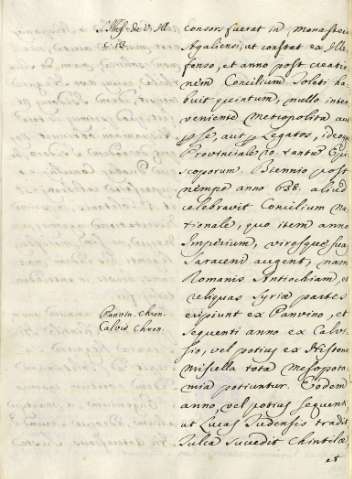 Illef. de V. Ill.
c. 13.
consors fuerat in monasterio
Agaliensi, ut constat ex Ille
fonso, et anno post creatio
nem Concilium Toleti ha
buit quintum, nullo inter
veniente metropolita aut
p se, aut p Legatos, ideoq
Provinciale 20. tantu Epi
scoporum. Biennio post
nempe anno 638. aliud
celebravit Concilium Na
tionale, quo item anno
Imperium, viresque sua
Saraceni augent, nam
Romanis Antiochiam, et
reliquas Syriæ partes
Panvin. Chron.
eripiunt ex Panvino, et
Calvis Chron.
sequenti anno ex Calvi
sio, vel potius ex Historia
miscella tota Mesopota
mia potiuntur. Eodem
anno, vel potius sequenti
ut Lucas Tudensis tradit
Tulca sucedit Chintilæ